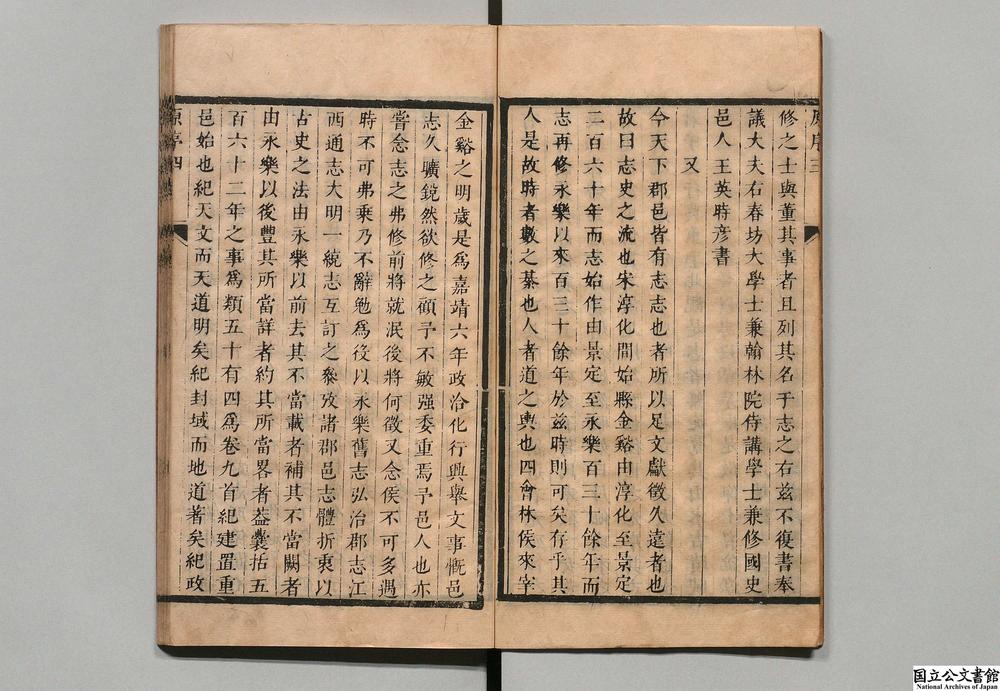 修之士與董其事者且列其名于志之右茲不復書奉
議大夫右春坊大學士兼翰林院侍講學士兼修國史
邑人王英時彥書
又
今天下郡邑皆有志志也者所以足文獻徵久遠者也
故曰志史之流也宋淳化間始縣金谿由淳化至景定
二百六十年而志始作由景定至永樂百三十餘年而
志再修永樂以來百三十餘年於茲時則可矣存乎其
人是故時者數之綦也人者道之輿也四會林侯來宰
金谿之明歲是爲嘉靖六年政洽化行興舉文事慨邑
志久曠鋭然欲修之顧予不敏强委重焉予邑人也亦
嘗念志之弗修前將就泯後將何徵又念侯不可多遇
時不可弗乘乃不辭勉爲役以永樂舊志弘治郡志江
西通志大明一統志互訂之參攷諸郡邑志體折衷以
古史之法由永樂以前去其不當載者補其不當闕者
由永樂以後豐其所當詳者約其所當畧者葢囊括五
百六十二年之事爲類五十有四爲卷九首紀建置重
邑始也紀天文而天道明矣紀封域而地道著矣紀政
原序三
原序四
国立公文書館
National Archives of Japan